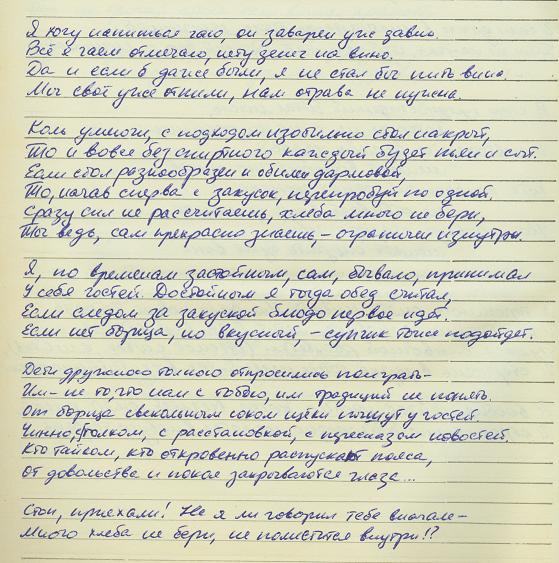 Я могу напиться чаю, он заварен уже давно.
Всё я чаем отмечаю, нету денег на вино.
Да и если б даже были, я не стал бы пить вина.
Мы своё уже отпили, нам отрава не нужна.
Коль умеючи, с подходом изобильно стол накрыт,
То и вовсе без спиртного каждый будет пьян и сыт.
Если стол разнообразен и обилен даровой,
То, начав сперва с закусок, перепробуй по одной.
Сразу сил не рассчитаешь, хлеба много не бери,
Ты ведь, сам прекрасно знаешь, – ограничен изнутри.
Я, по временам застойным, сам, бывало, принимал
У себя гостей. Достойным я тогда обед считал,
Если следом за закуской блюдо первое идёт.
Если нет борща, но вкусный, – супчик тоже подойдёт.
Дети дружного полного отпросились поиграть –
Им – не то, что нам с тобою, им традиций не понять.
От борща свекольным соком щёки пышут у гостей
Чинно, с толком, с расстановкой, с пересказом новостей.
Кто тайком, кто откровенно распускает пояса,
От довольства и покоя закрываются глаза...
Стоп, приехали! Не я ли говорил тебе вначале –
Много хлеба не бери, не поместится внутри!?